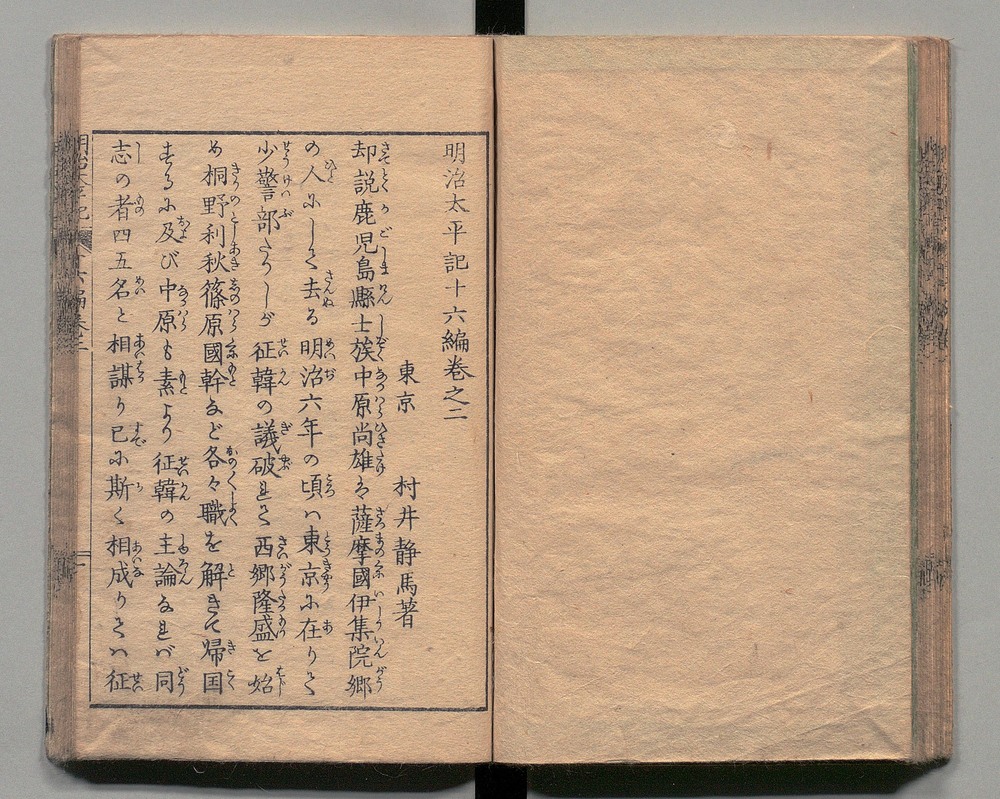 明治太平記十六編卷之二
東京 村井静馬著
却説鹿児島縣士族中原尚雄ハ薩摩國伊集院郷
の人にして去る明治六年の頃ハ東京に在りて
少警部たりしが征韓の議破れて西郷隆盛を始
め桐野利秋篠原國幹など各々職を解きて帰国
するに及び中原も素より征韓の主論なれバ同
志の者四五名と相謀り已に斯く相成りてハ征